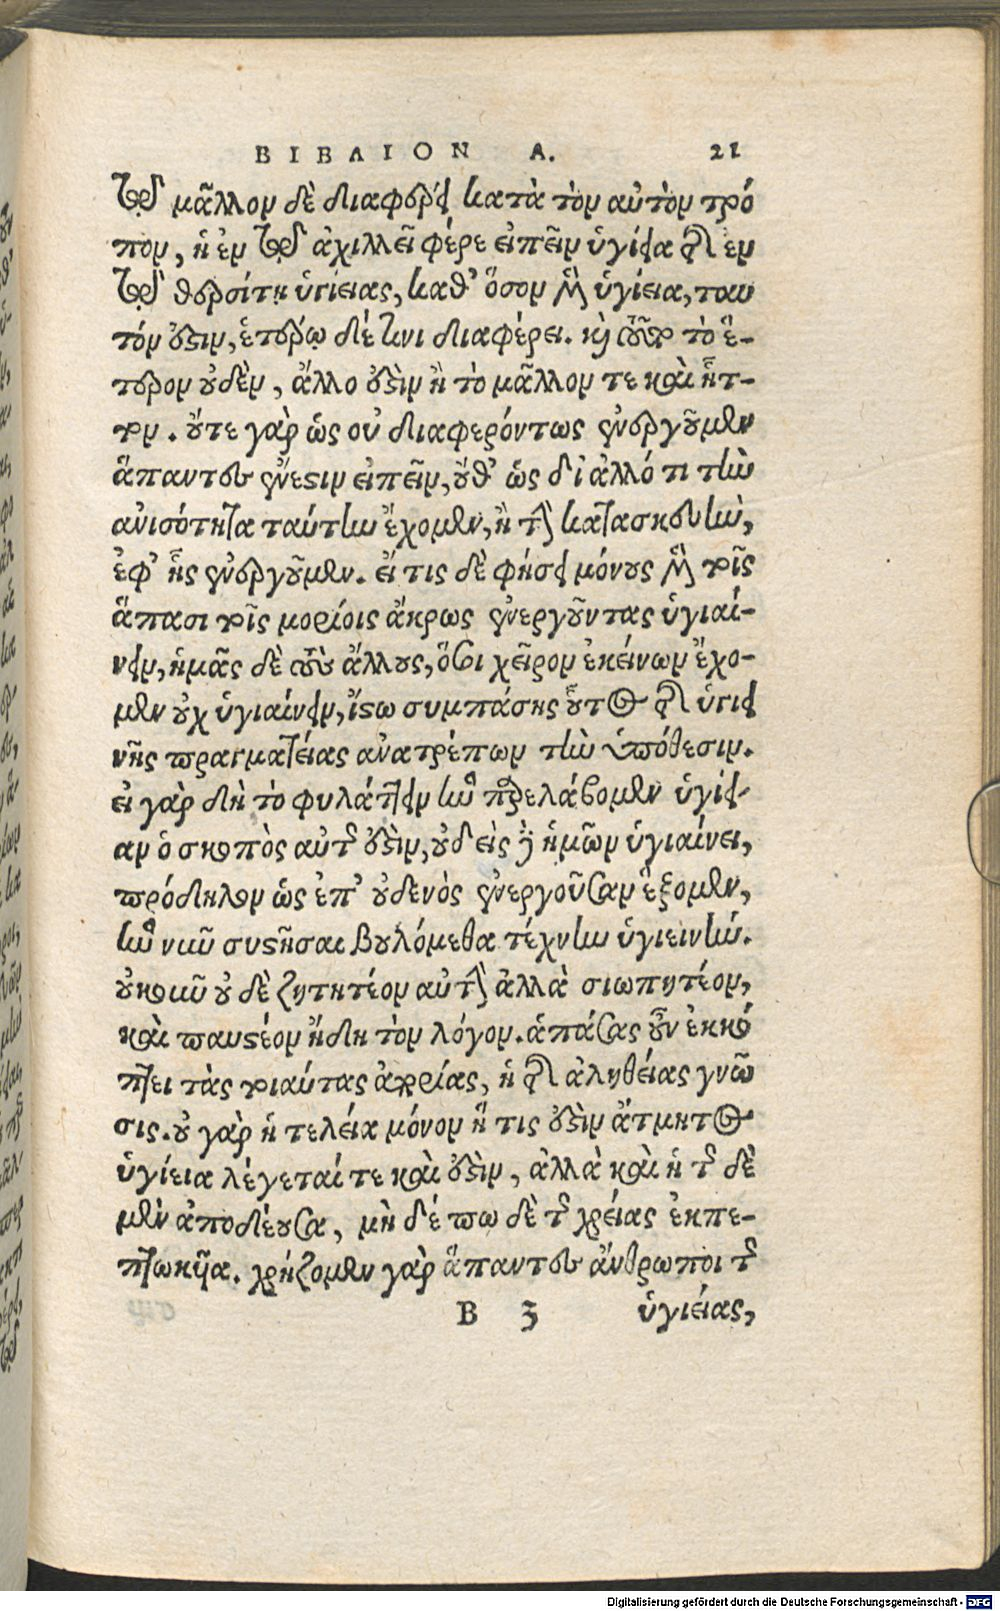 ΒΙΒΛΙΟΝ Α. 21
τῷ μᾶλλον δὲ διαφέρει κατὰ τὸν αὐτὸν τρό
πον, ἡ ἐν τῷ ἀχιλλεῖ φέρε εἰπεῖν ὑγίεια τῆς ἐν
τῷ θερσίτῃ ὑγιείας, καθ' ὅσον μὲν ὑγίεια, ταυ
τόν ὄστιν, ἑτέρῳ δέ τινι διαφέρει. καὶ τοῦτο τὸ ἕ-
τερον οὐδὲν, ἄλλο ὄστὶν ἢ τὸ μᾶλλον τε καὶ ἧτ-
τον. οὔτε γὰρ ὡς οὐ διαφερόντως ἐνεργοῦμεν
ἅπαντες ἔνεστιν εἰπεῖν, οὔθ' ὡς δι' ἀλλό τι τὴν
ἀνισότητα ταύτην ἔχομεν, ἢ τῆς κατασκευὴν,
ἐφ' ἧς ἐνεργοῦμεν. εἴ τις δὲ φήσει μόνους μὲν τοῖς
ἅπασι τοῖς μορίοις ἄκρως ἐνεργοῦντας ὑγιαί-
νειν, ἡμᾶς δὲ τοὺς ἄλλους, ὅσοι χεῖρον ἐκείνων ἔχο-
μεν οὐχ ὑγιαίνειν, ἴστω συμπάσης οὗτος τῆς ὑγιει
νῆς πραγματείας ἀνατρέπων τὴν ὑπόθεσιν.
εἰ γὰρ δὴ τὸ φυλάττειν ἣν παρελάβομεν ὑγίει-
αν ὁ σκοπὸς αὐτῆς ὄστὶν, οὐδεὶς δὲ ἡμῶν ὑγιαίνει,
πρόδηλον ὡς ἐπ' οὐδενὸς ἐνεργοῦσαν ἕξομεν,
ἣν νῦν συστῆσαι βουλόμεθα τέχνην ὑγιεινήν.
οὐκοῦν οὐδὲ ζητητέον αὐτὴν ἀλλὰ σιωπητέον,
καὶ παυστέον ἤδη τὸν λόγον. ἁπάσας οὖν ἐκκό
πτει τὰς τοιαύτας ἀπορίας, ἡ τῆς ἀληθείας γνῶ
σις. οὐ γὰρ ἡ τελεία μόνον ἥ τις ὄστὶν ἄτμητος
ὑγίεια λέγεταί τε καὶ ὄστὶν, ἀλλὰ καὶ ἡ τοῦ δὲ
μὲν ἀποδέουσα, μὴ δέ πω δὲ τῆς χρείας ἐκπε-
πτωκυῖα. χρήζομεν γὰρ ἅπαντες ἄνθρωποι τῆς
B 3 ὑγιείας,
Digitalisierung gefördert durch die Deutsche Forschungsgemeinschaft - DFG